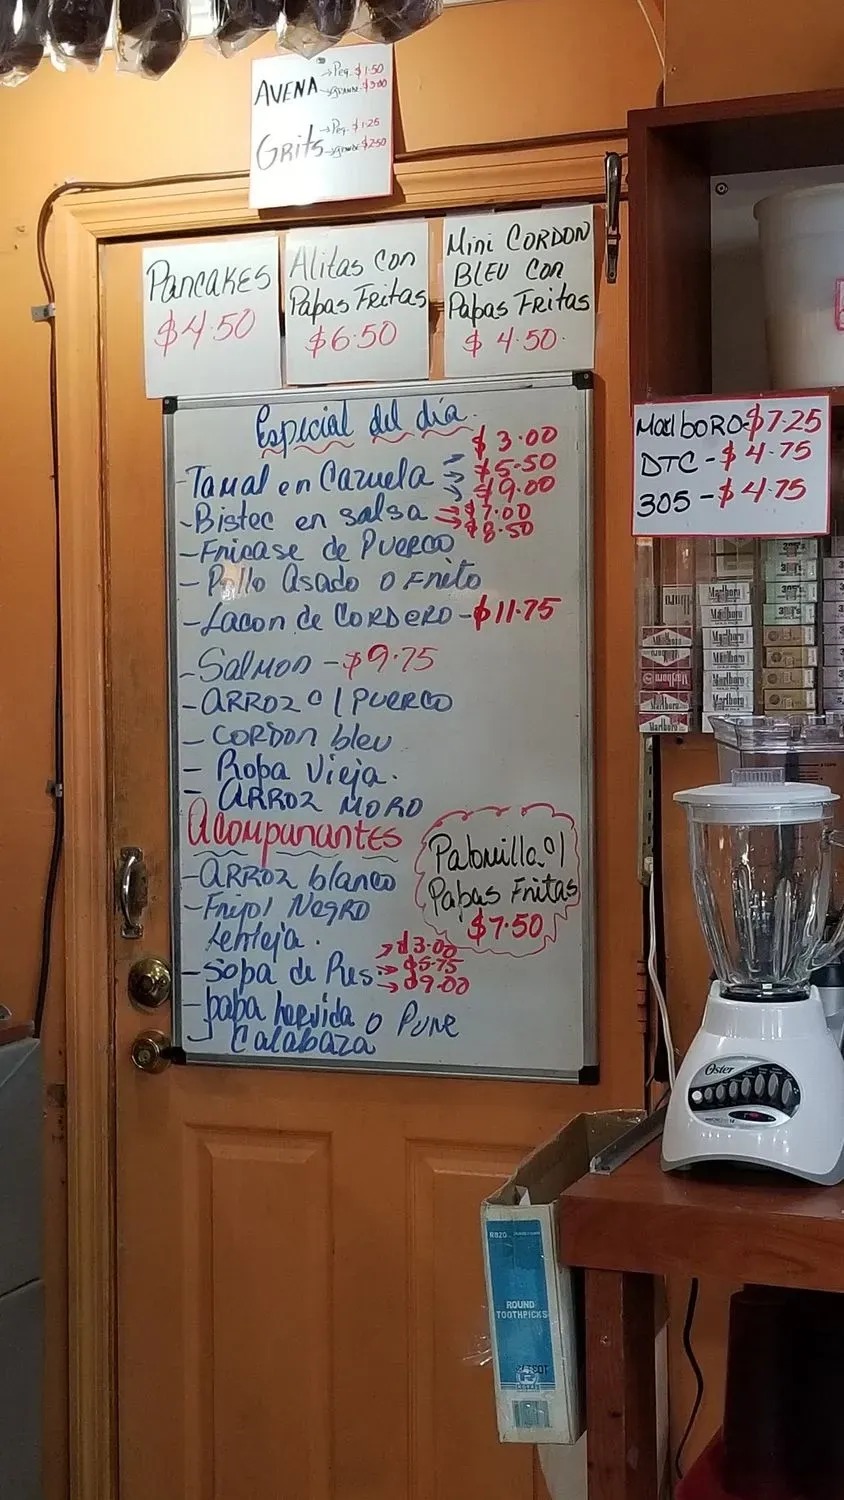 AVENA →Peq. $1.50
→GRANDE $3.00
Grits →Peq. $1.25
→GRANDE $2.50
PANCAKES
$4.50
Alitas Con
Papas Fritas
$6.50
Mini CORDON
BLEU Con
Papas Fritas
$ 4.50.
Marlboro-$7.25
DTC - $4.75
305 - $4.75
Especial del día.
- Tamal en Cazuela → $3.00
→ $5.50
→ $9.00
- Bistec en salsa → $7.00
→ $8.50
- Fricase de Puerco
- Pollo Asado o Frito
- Lacon de CORDERO - $11.75
- Salmon - $9.75
- ARROZ c/ Puerco
- CORDON bleu
- Ropa Vieja.
- ARROZ MORO
Acompanantes
- ARROZ blanco
- Frijol NEGRO
Lenteja.
- Sopa de Res → $3.00
→ $5.75
→ $9.00
- papa hervida o Pure
- Calabaza
Palomilla c/
Papas Fritas
$7.50
Marlboro
Marlboro
Marlboro
Marlboro
Marlboro
Marlboro
305's
305's
Oster
R820
ROUND
TOOTHPICKS